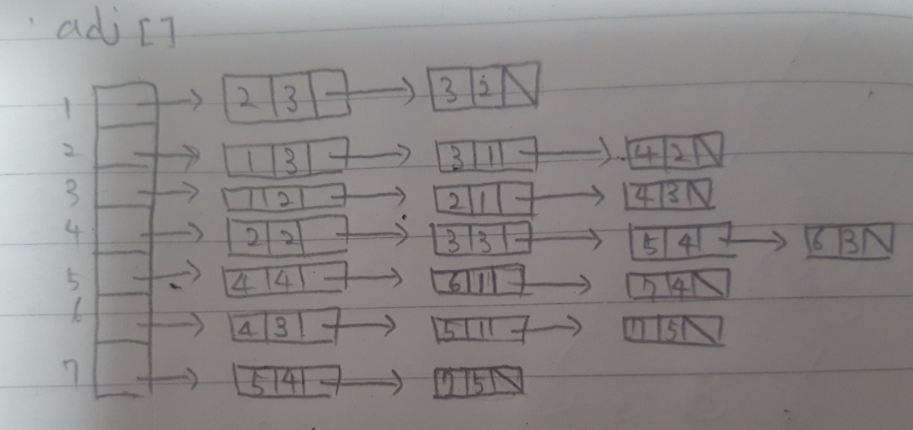 adj []
1 2 3 3 2
2 1 3 3 1 4 2
3 1 2 2 1 4 3
4 2 2 3 3 5 4 6 3
5 4 4 6 1 7 4
6 4 3 5 1 7 5
7 5 4 7 5